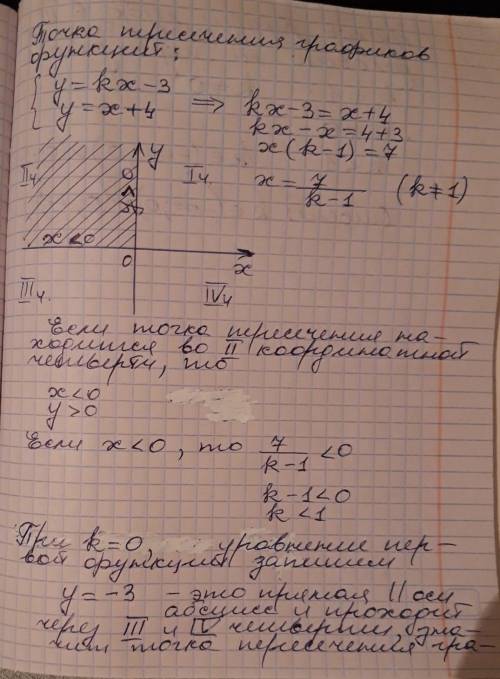 Точка пересечения графиков
функций:
{ y = kx - 3
y = x + 4 => kx - 3 = x + 4
kx - x = 4 + 3
x(k-1) = 7
x = 7/(k-1) (k ≠ 1)
y
IIч. y>0 Iч.
x<0
0 x
IIIч. IVч
Если точка пересечения на-
ходится во II координатной
четверти, то
x < 0
y > 0
Если x < 0, то 7/(k-1) < 0
k - 1 < 0
k < 1
При k = 0, уравнение пер-
вой функции запишем
y = -3 - это прямая || оси
абсцисс и проходит
через III и IV четверти, зна-
чит точка пересечения гра-